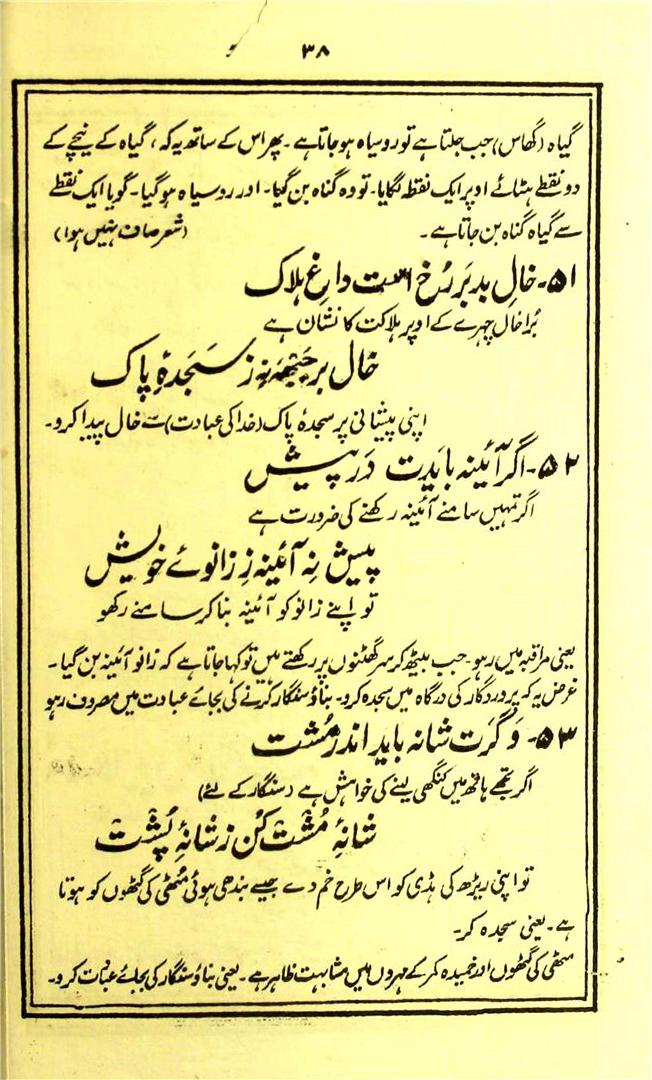 ۳۸
گیاہ (گھاس) جب جلتا ہے تو رو سیاہ ہو جاتا ہے۔ پھر اس کے ساتھ یہ کہ، گیاہ کے نیچے کے
دو نقطے ہٹائے اوپر ایک نقطہ لگایا۔ تو وہ گناہ بن گیا۔ اور رو سیاہ ہو گیا۔ گویا ایک نقطے
سے گیاہ گناہ بن جاتا ہے۔ (شعر صاف نہیں ہوا)
۵۱۔ خالِ بد بَر رُخ است داغِ ہلاک
بُرا خال چہرے کے اوپر ہلاکت کا نشان ہے
خال بر جبهہ نِہ ز سَجَدۂِ پاک
اپنی پیشانی پر سجدۂ پاک (خدا کی عبادت) سے خال پیدا کرو۔
۵۲۔ اگر آئینہ بایَدت دَر پیش
اگر تمہیں سامنے آئینہ رکھنے کی ضرورت ہے
پیش نِہ آئینہ زِ زانوئے خویش
تو اپنے زانو کو آئینہ بنا کر سامنے رکھو
یعنی مراقبہ میں رہو۔ جب بیٹھ کر سر گھٹنوں پر رکھتے ہیں تو کہا جاتا ہے کہ زانو آئینہ بن گیا۔
غرض یہ کہ پروردگار کی درگاہ میں سجدہ کرو۔ بناؤ سنگار کرنے کی بجائے عبادت میں مصروف رہو
۵۳۔ وَگرَت شانہ باید اندر مُشت
اگر تجھے ہاتھ میں کنگھی لینے کی خواہش ہے (سنگار کے لئے)
شانۂِ مُشت کُن ز شانۂِ پُشت
تو اپنی ریڑھ کی ہڈی کو اس طرح خم دے جیسے بندھی ہوئی مُٹھی کی گٹھوں کو ہوتا
ہے۔ یعنی سجدہ کر۔
مٹھی کی گٹھوں اور خمیدہ کمر کے مہروں میں مشابہت ظاہر ہے۔ یعنی بناؤ سنگار کی بجائے عبادت کرو۔